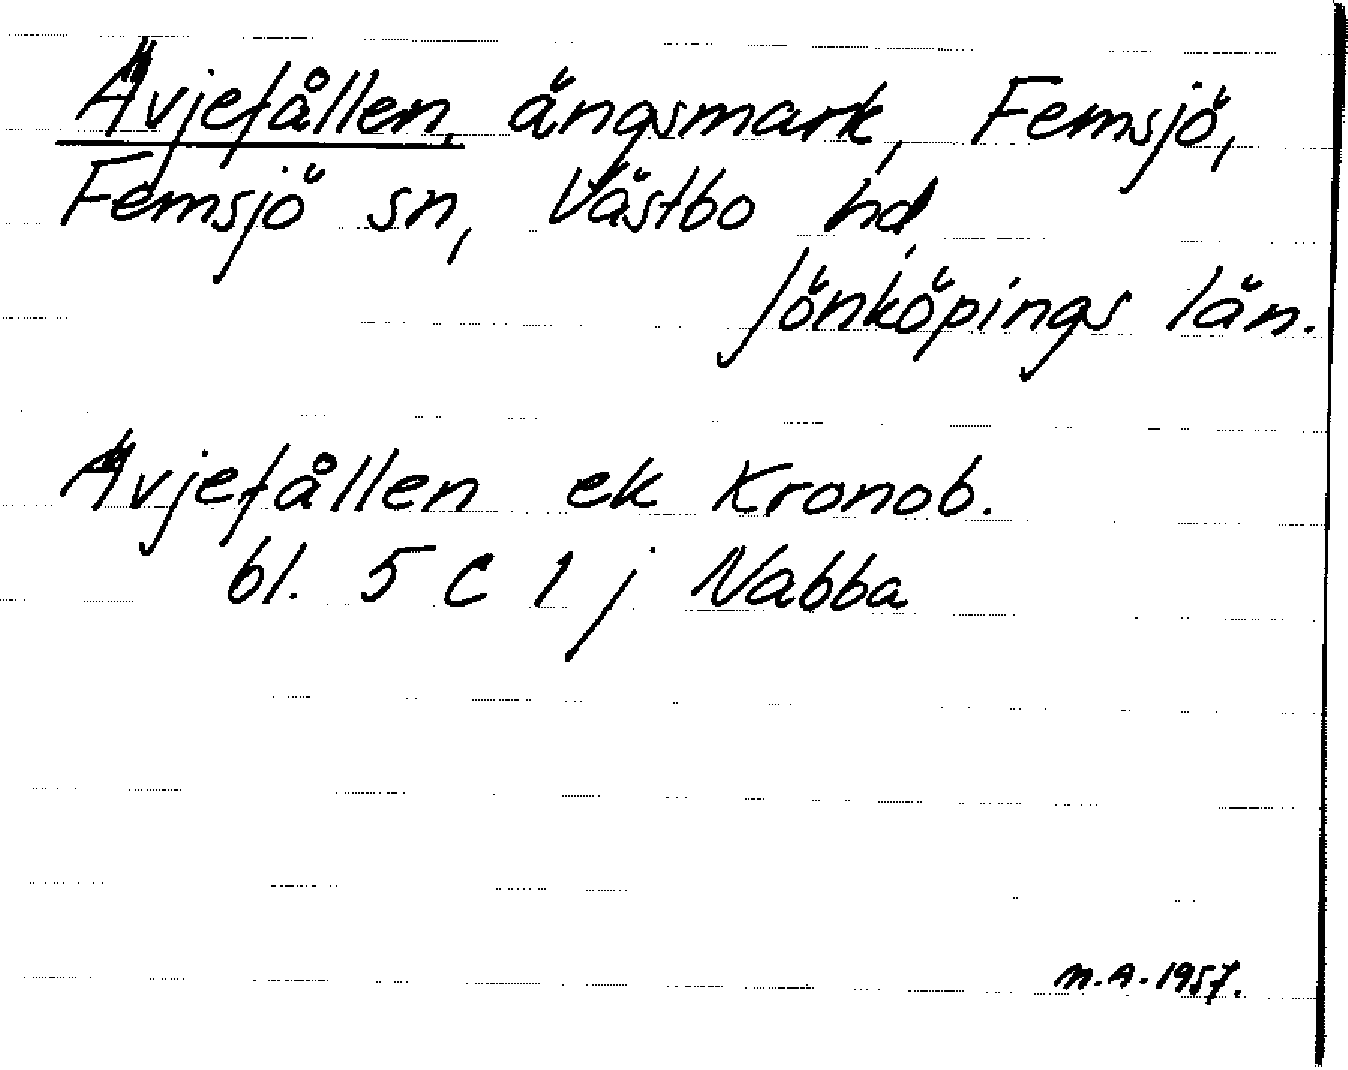 Ävjefållen, ängsmark, Femsjö,
Femsjö sn, Västbo hd,
Jönköpings län.
Ävjefållen ek Kronob.
bl. 5 C 1 j Nabba
M.A. 1957.